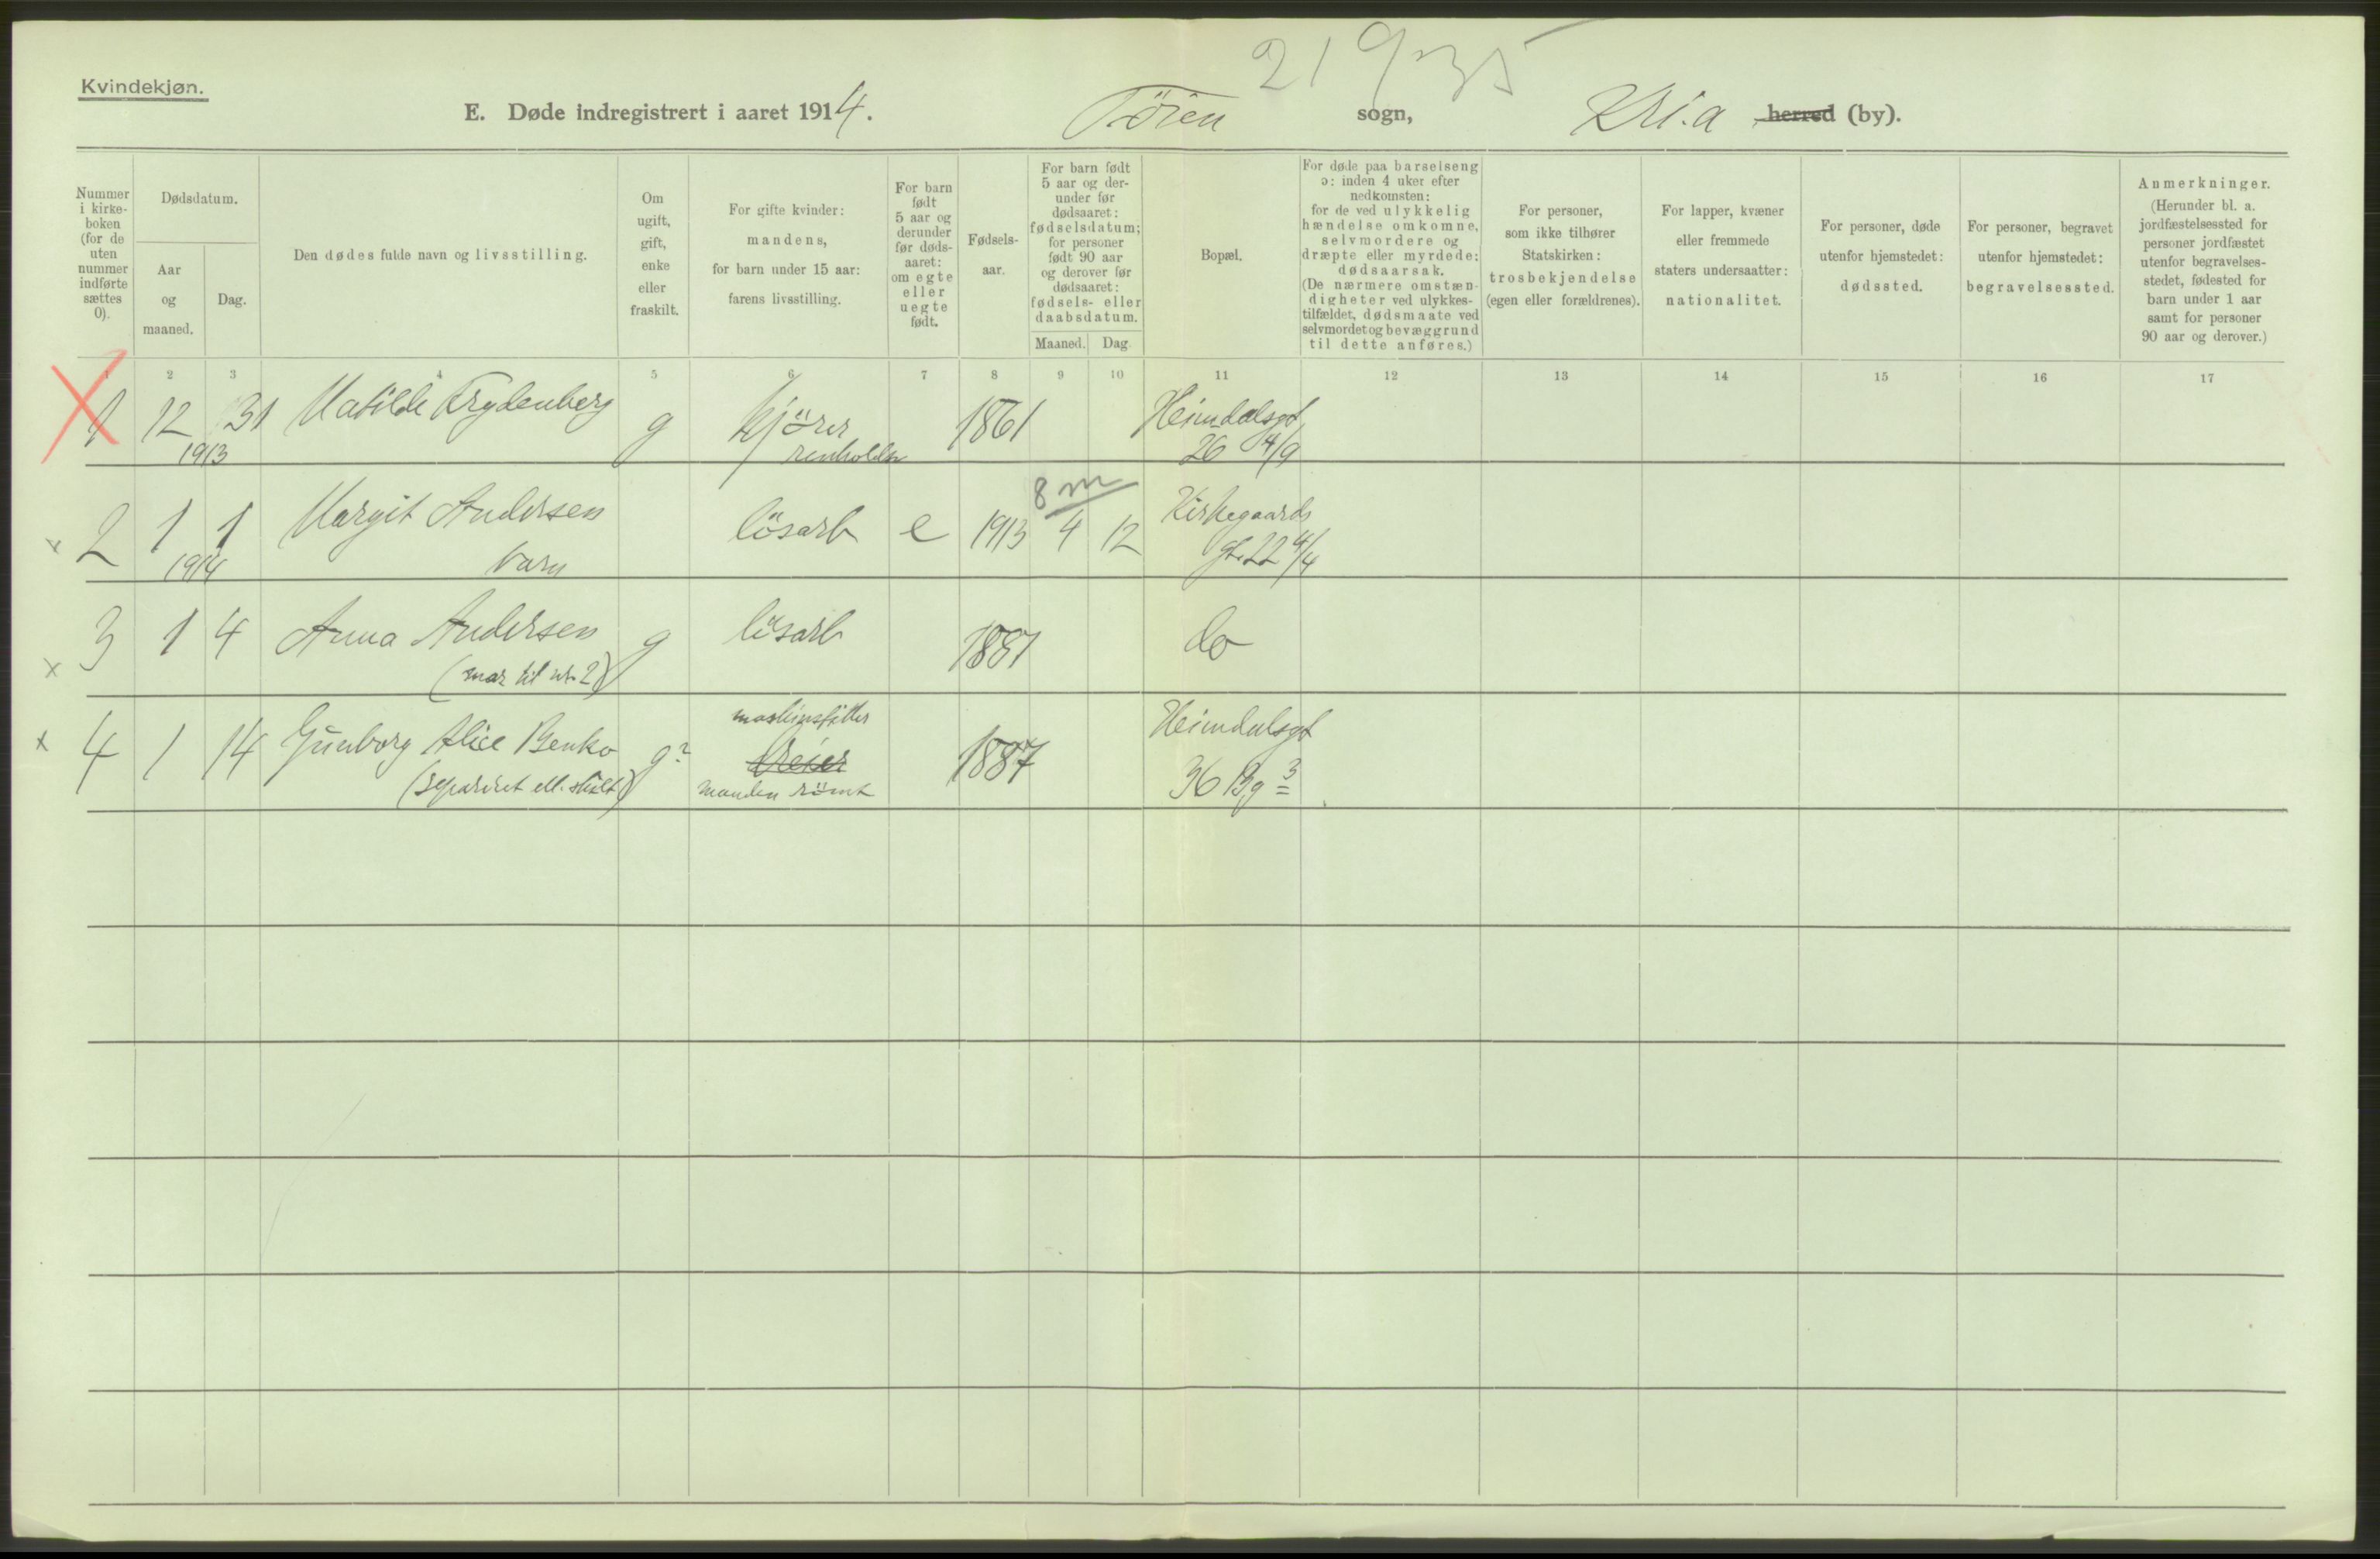 21935
Kvindekjøn.
E. Døde indregistrert i aaret 1914. Töien sogn, Kri.a herred (by).
Nummer i kirke-boken (for de uten nummer indførte sættes 0).
Dødsdatum.
Aar og maaned.
Dag.
Den dødes fulde navn og livsstilling.
Om ugift, gift, enke eller fraskilt.
For gifte kvinder: mandens, for barn under 15 aar: farens livsstilling.
For barn født 5 aar og derunder før døds-aaret: om egte eller uegte født.
Fødsels-aar.
For barn født 5 aar og der-under før dødsaaret: fødselsdatum; for personer født 90 aar og derover før dødsaaret: fødsels- eller daabsdatum.
Maaned. Dag.
Bopæl.
For døde paa barselseng ɔ: inden 4 uker efter nedkomsten: for de ved ulykkelig hændelse omkomne, selvmordere og dræpte eller myrdede: dødsaarsak. (De nærmere omstæn-digheter ved ulykkes-tilfældet, dødsmaate ved selvmordet og bevæggrund til dette anføres.)
For personer, som ikke tilhører Statskirken: trosbekjendelse (egen eller forældrenes).
For lapper, kvæner eller fremmede staters undersaatter: nationalitet.
For personer, døde utenfor hjemstedet: dødssted.
For personer, begravet utenfor hjemstedet: begravelsessted.
Anmerkninger. (Herunder bl. a. jordfæstelsessted for personer jordfæstet utenfor begravelses-stedet, fødested for barn under 1 aar samt for personer 90 aar og derover.)
1 2 3 4 5 6 7 8 9 10 11 12 13 14 15 16 17
1 12 31 Matilde Frydenberg g kjörer 1861 Heimdalsgt
1913 renholdsv 26 4/9
8 m
2 1 1 Margit Andersen lösarb e 1913 4 12 Kirkegaards
1914 barn gt. 22 4/4
3 1 4 Anna Andersen g lösarb 1881 do
(mor til nr. 2)
maskinsfitter
4 1 14 Gunborg Alice Benko g? Dreier 1887 Heimdalsgt
(separeret ell. skilt) manden römt 36 Bg 3